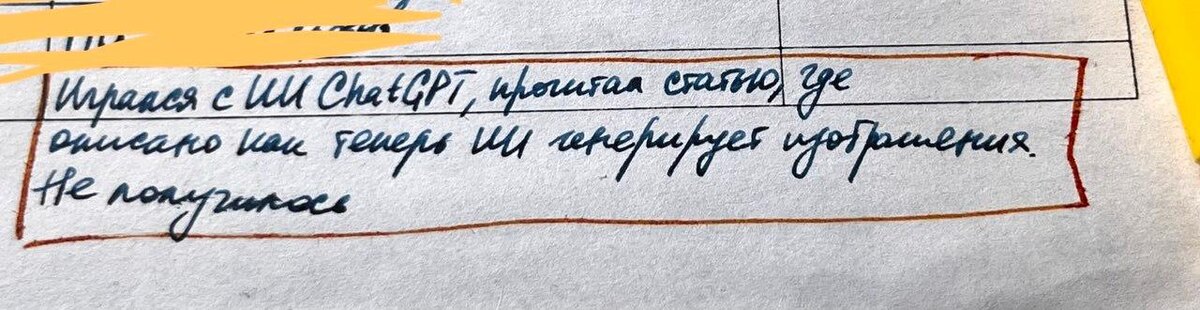 Игрался с ИИ ChatGPT, прочитал статью, где
описано как теперь ИИ генерирует изображения.
Не получилось